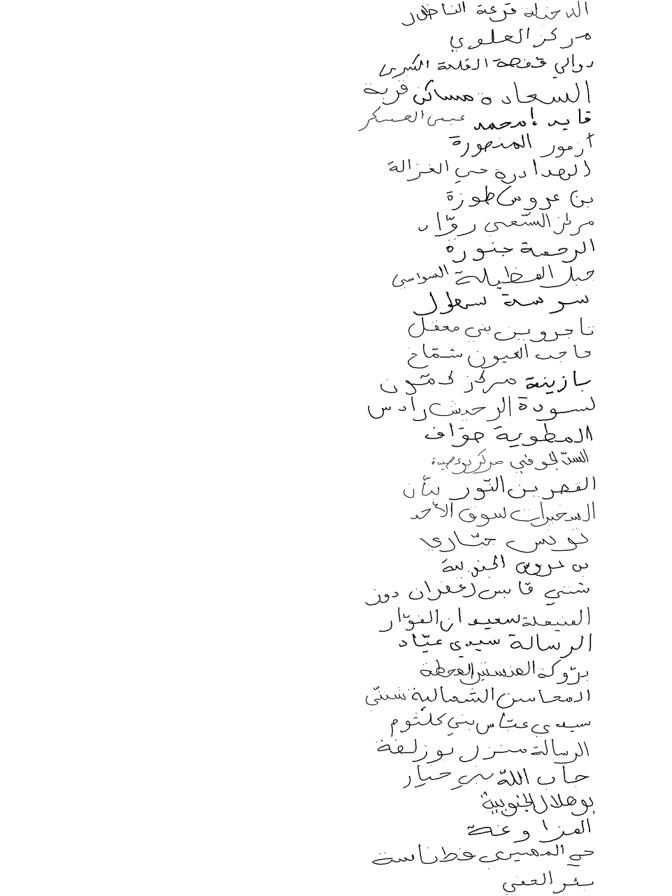 الدخيلة قرعة الناظور
مركز العلوي
دوالي قفصة القلعة الكبرى
السعادة مساكن قربة
قايد امحمد عيسى العسكر
أزمور المنصورة
الهدادرة حي الغزالة
بن عروس طوزة
مركز الشعبي روّاد
الرحمة جنورة
جبل العظيلة السواسي
سوسة سهلول
تاجروين بني معقل
حاجب العيون شمّاخ
بازينة مركز كمّون
لسودة الرحيش رادس
المطوية حوّاف
السدّ الجوفي مركز بوعصيدة
القصر بن النّور
السخيرات سوق الأحد
تونس حشّاد
بن عروس الجنوبية
شنني قابس زعفران دوز
القنيفلة سعيدان الفوّار
الرسالة سيدي عيّاد
برّوكة المنستير المحطة
المحاسن الشمالية شنني
سيدي عبّاس بني كلثوم
الرسالة منزل بوزلفة
جاب اللّه حيار
بوهلال الجنوبية
المزاوغة
حي المهيري قطناسة
بئر الحفي